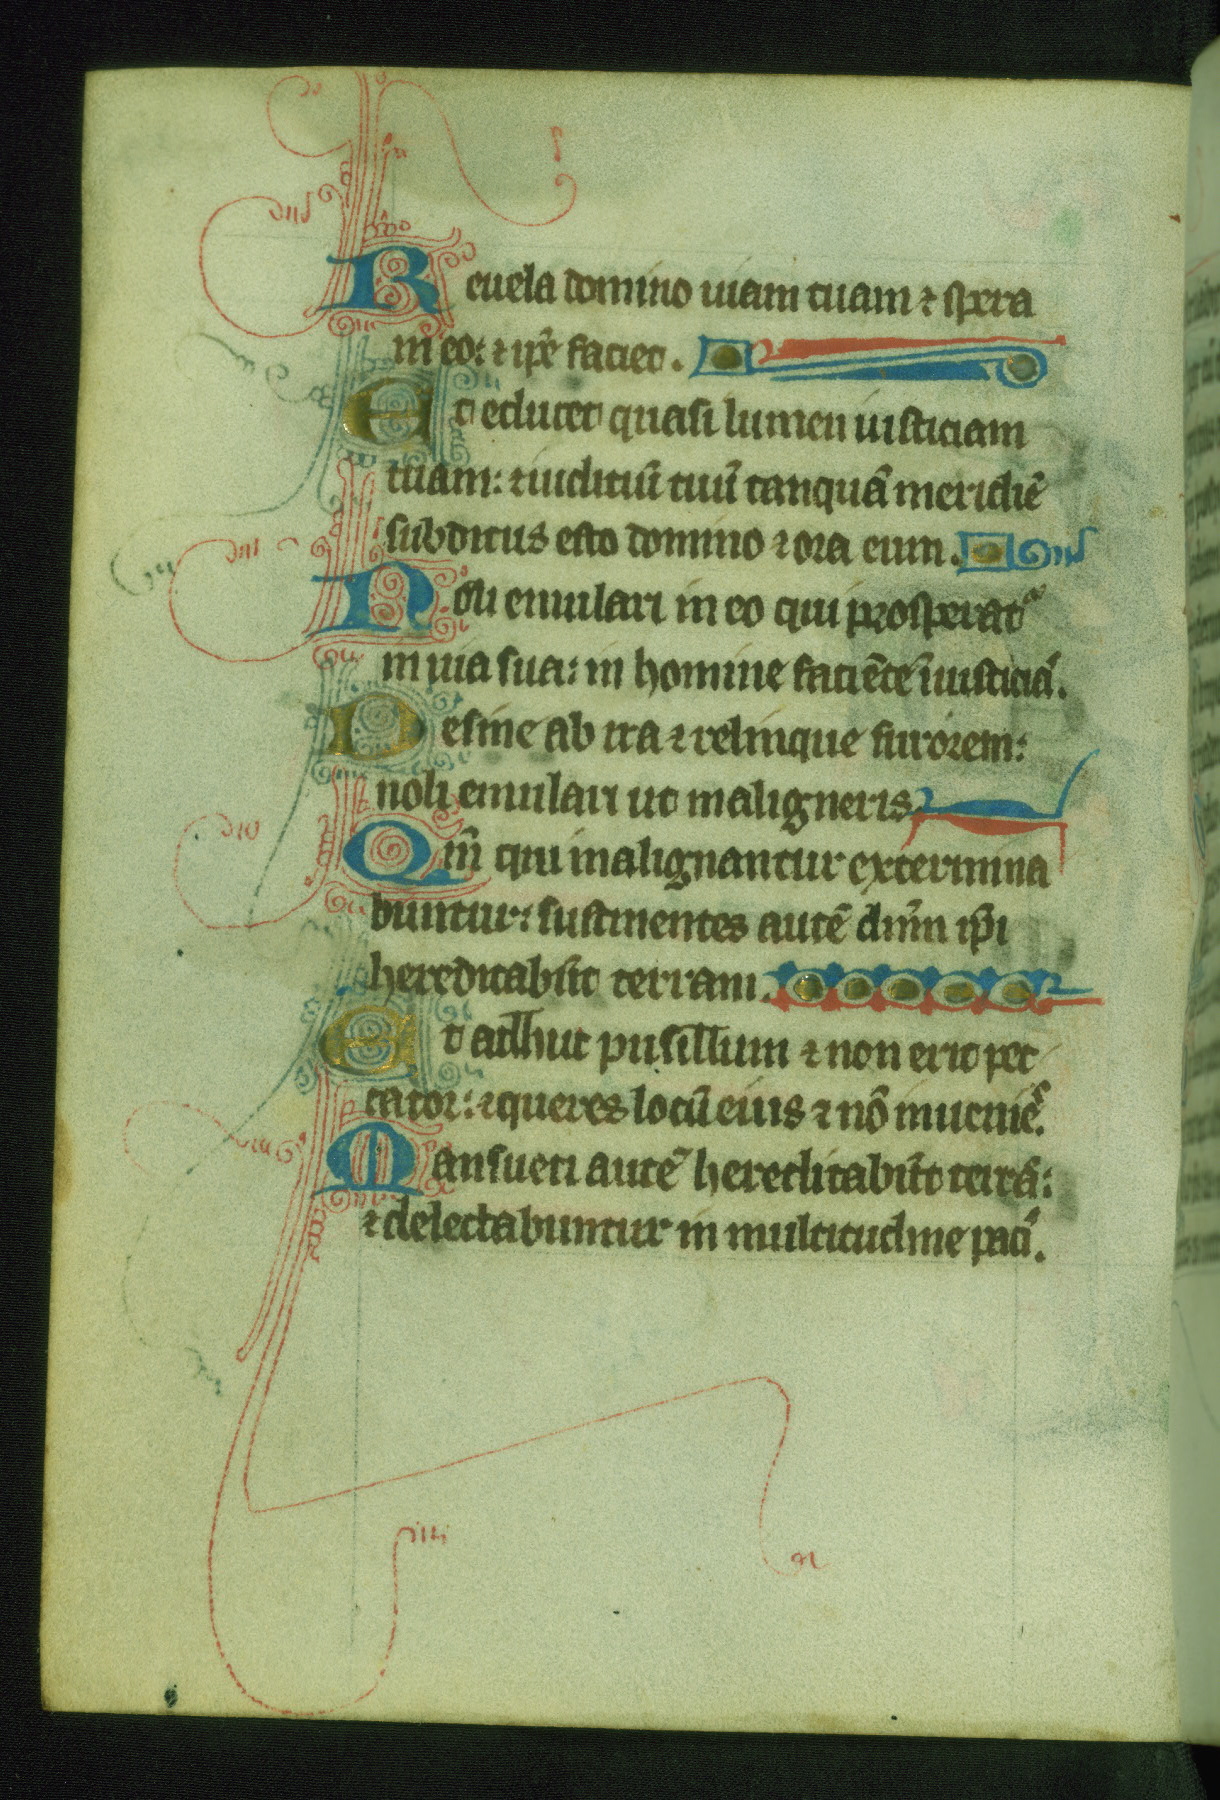 Reuela domino uiam tuam ⁊ spera
in eo: ⁊ ip̃e faciet.
Et educet quasi lumen iusticiam
tuam: ⁊ iudiciũ tuũ tanquã meridiẽ
subditus esto domino ⁊ ora eum.
Noli emulari in eo qui prosperat᷑
in uia sua: in homine faciẽte iniusticiã.
Desine ab ira ⁊ relinque furorem:
noli emulari ut maligneris
Qm̃ qui malignantur extermina
buntur: sustinentes autẽ dñm ip̃i
hereditabũt terram.
Et adhuc pusillum ⁊ non erit pec
cator: ⁊ queres locũ eius ⁊ nõ inueniẽ᷑.
Mansueti autẽ hereditabũt terrã:
⁊ delectabuntur in multitudine paci᷒.